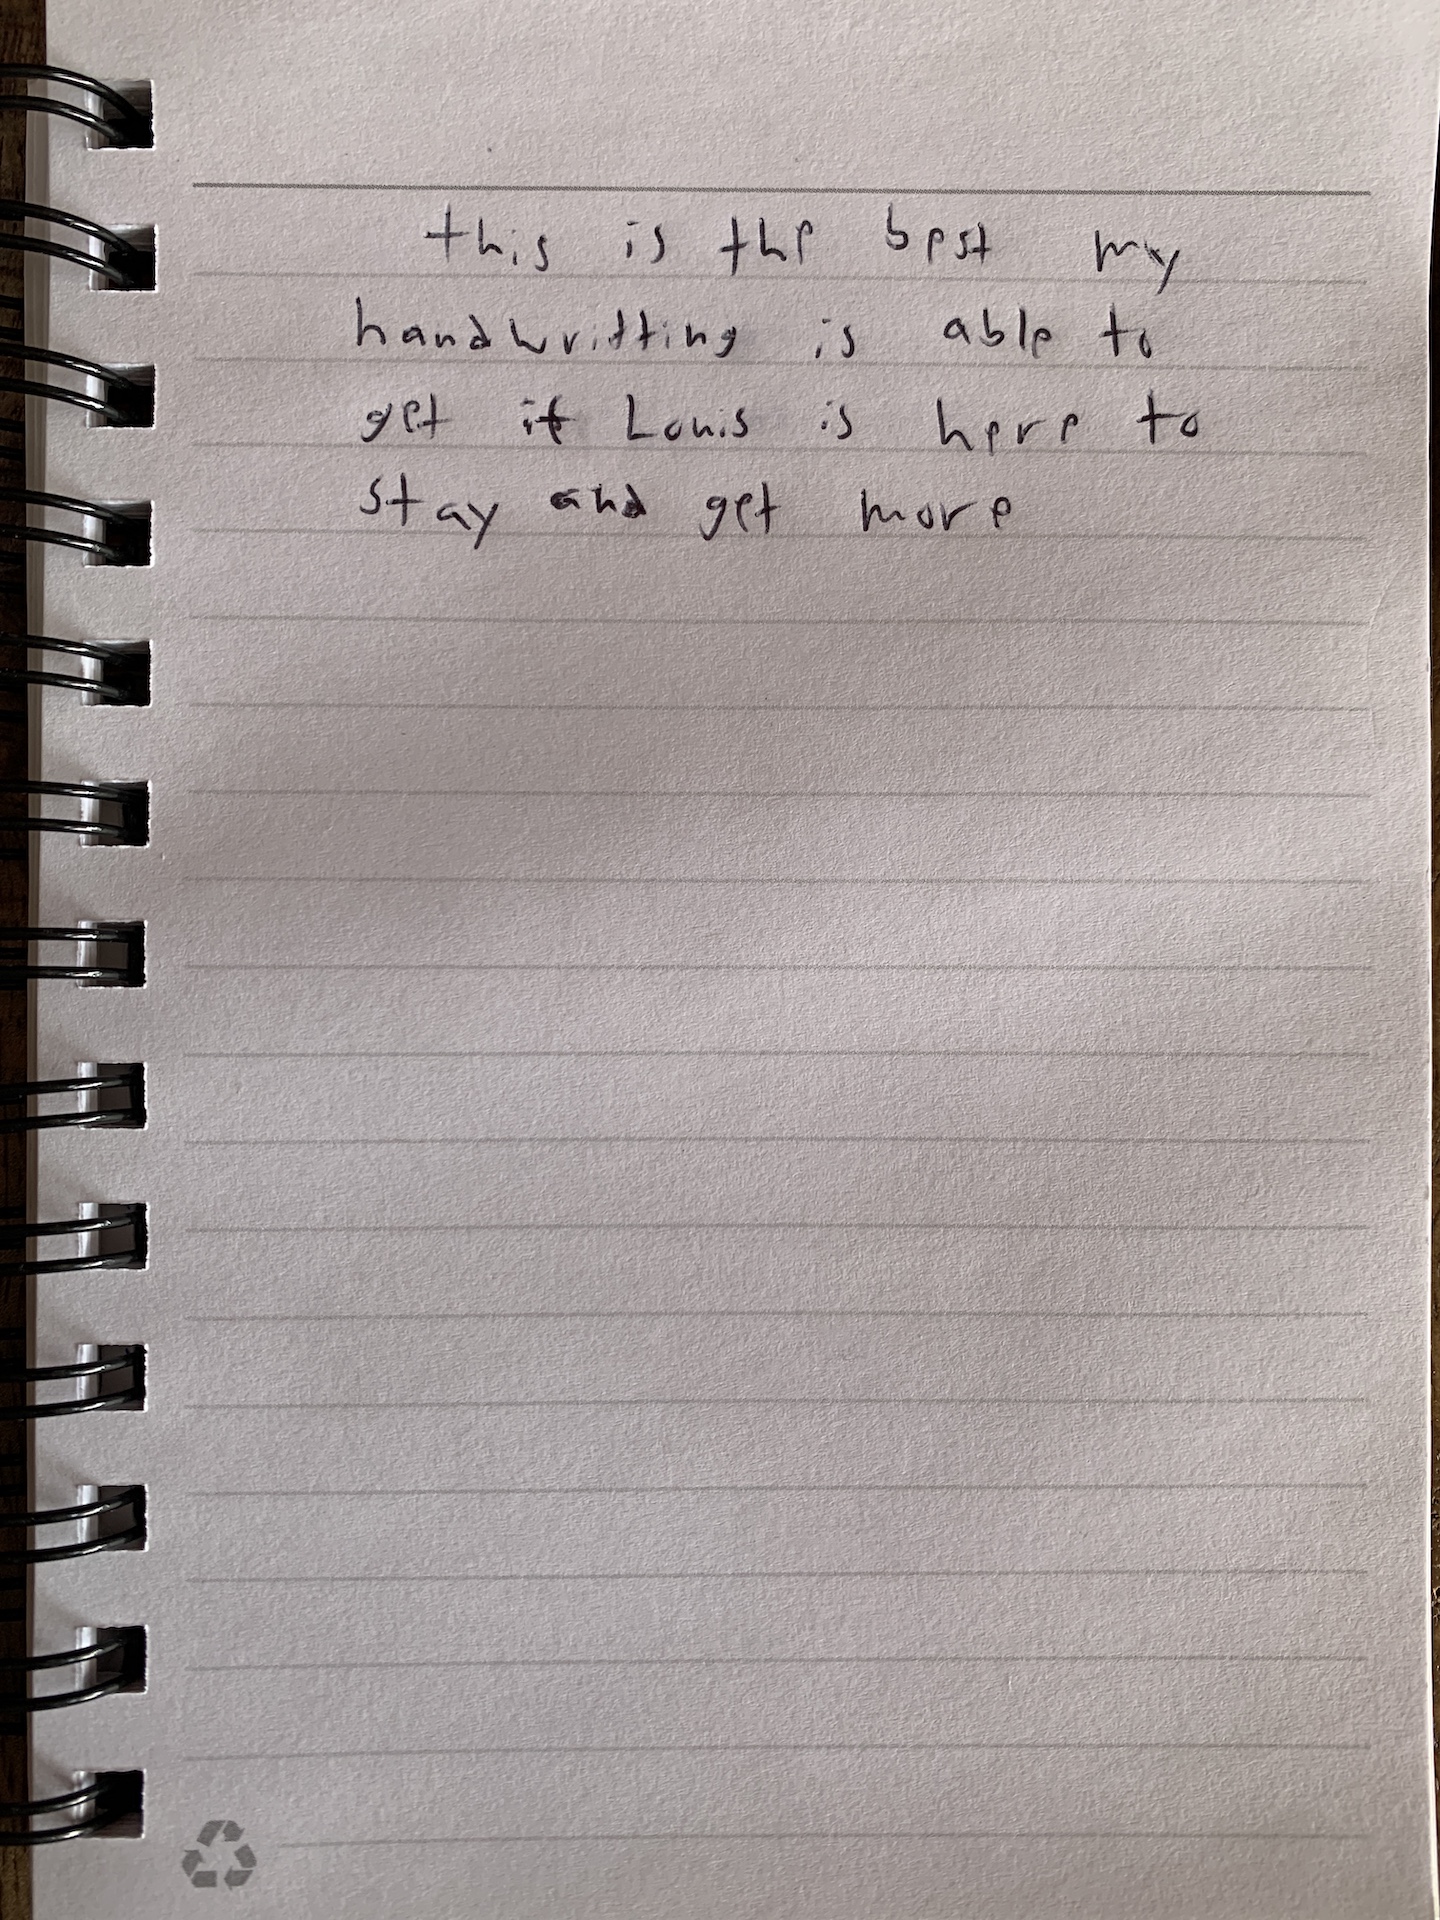 this is the best my
handwritting is able to
get if Louis is here to
stay and get more